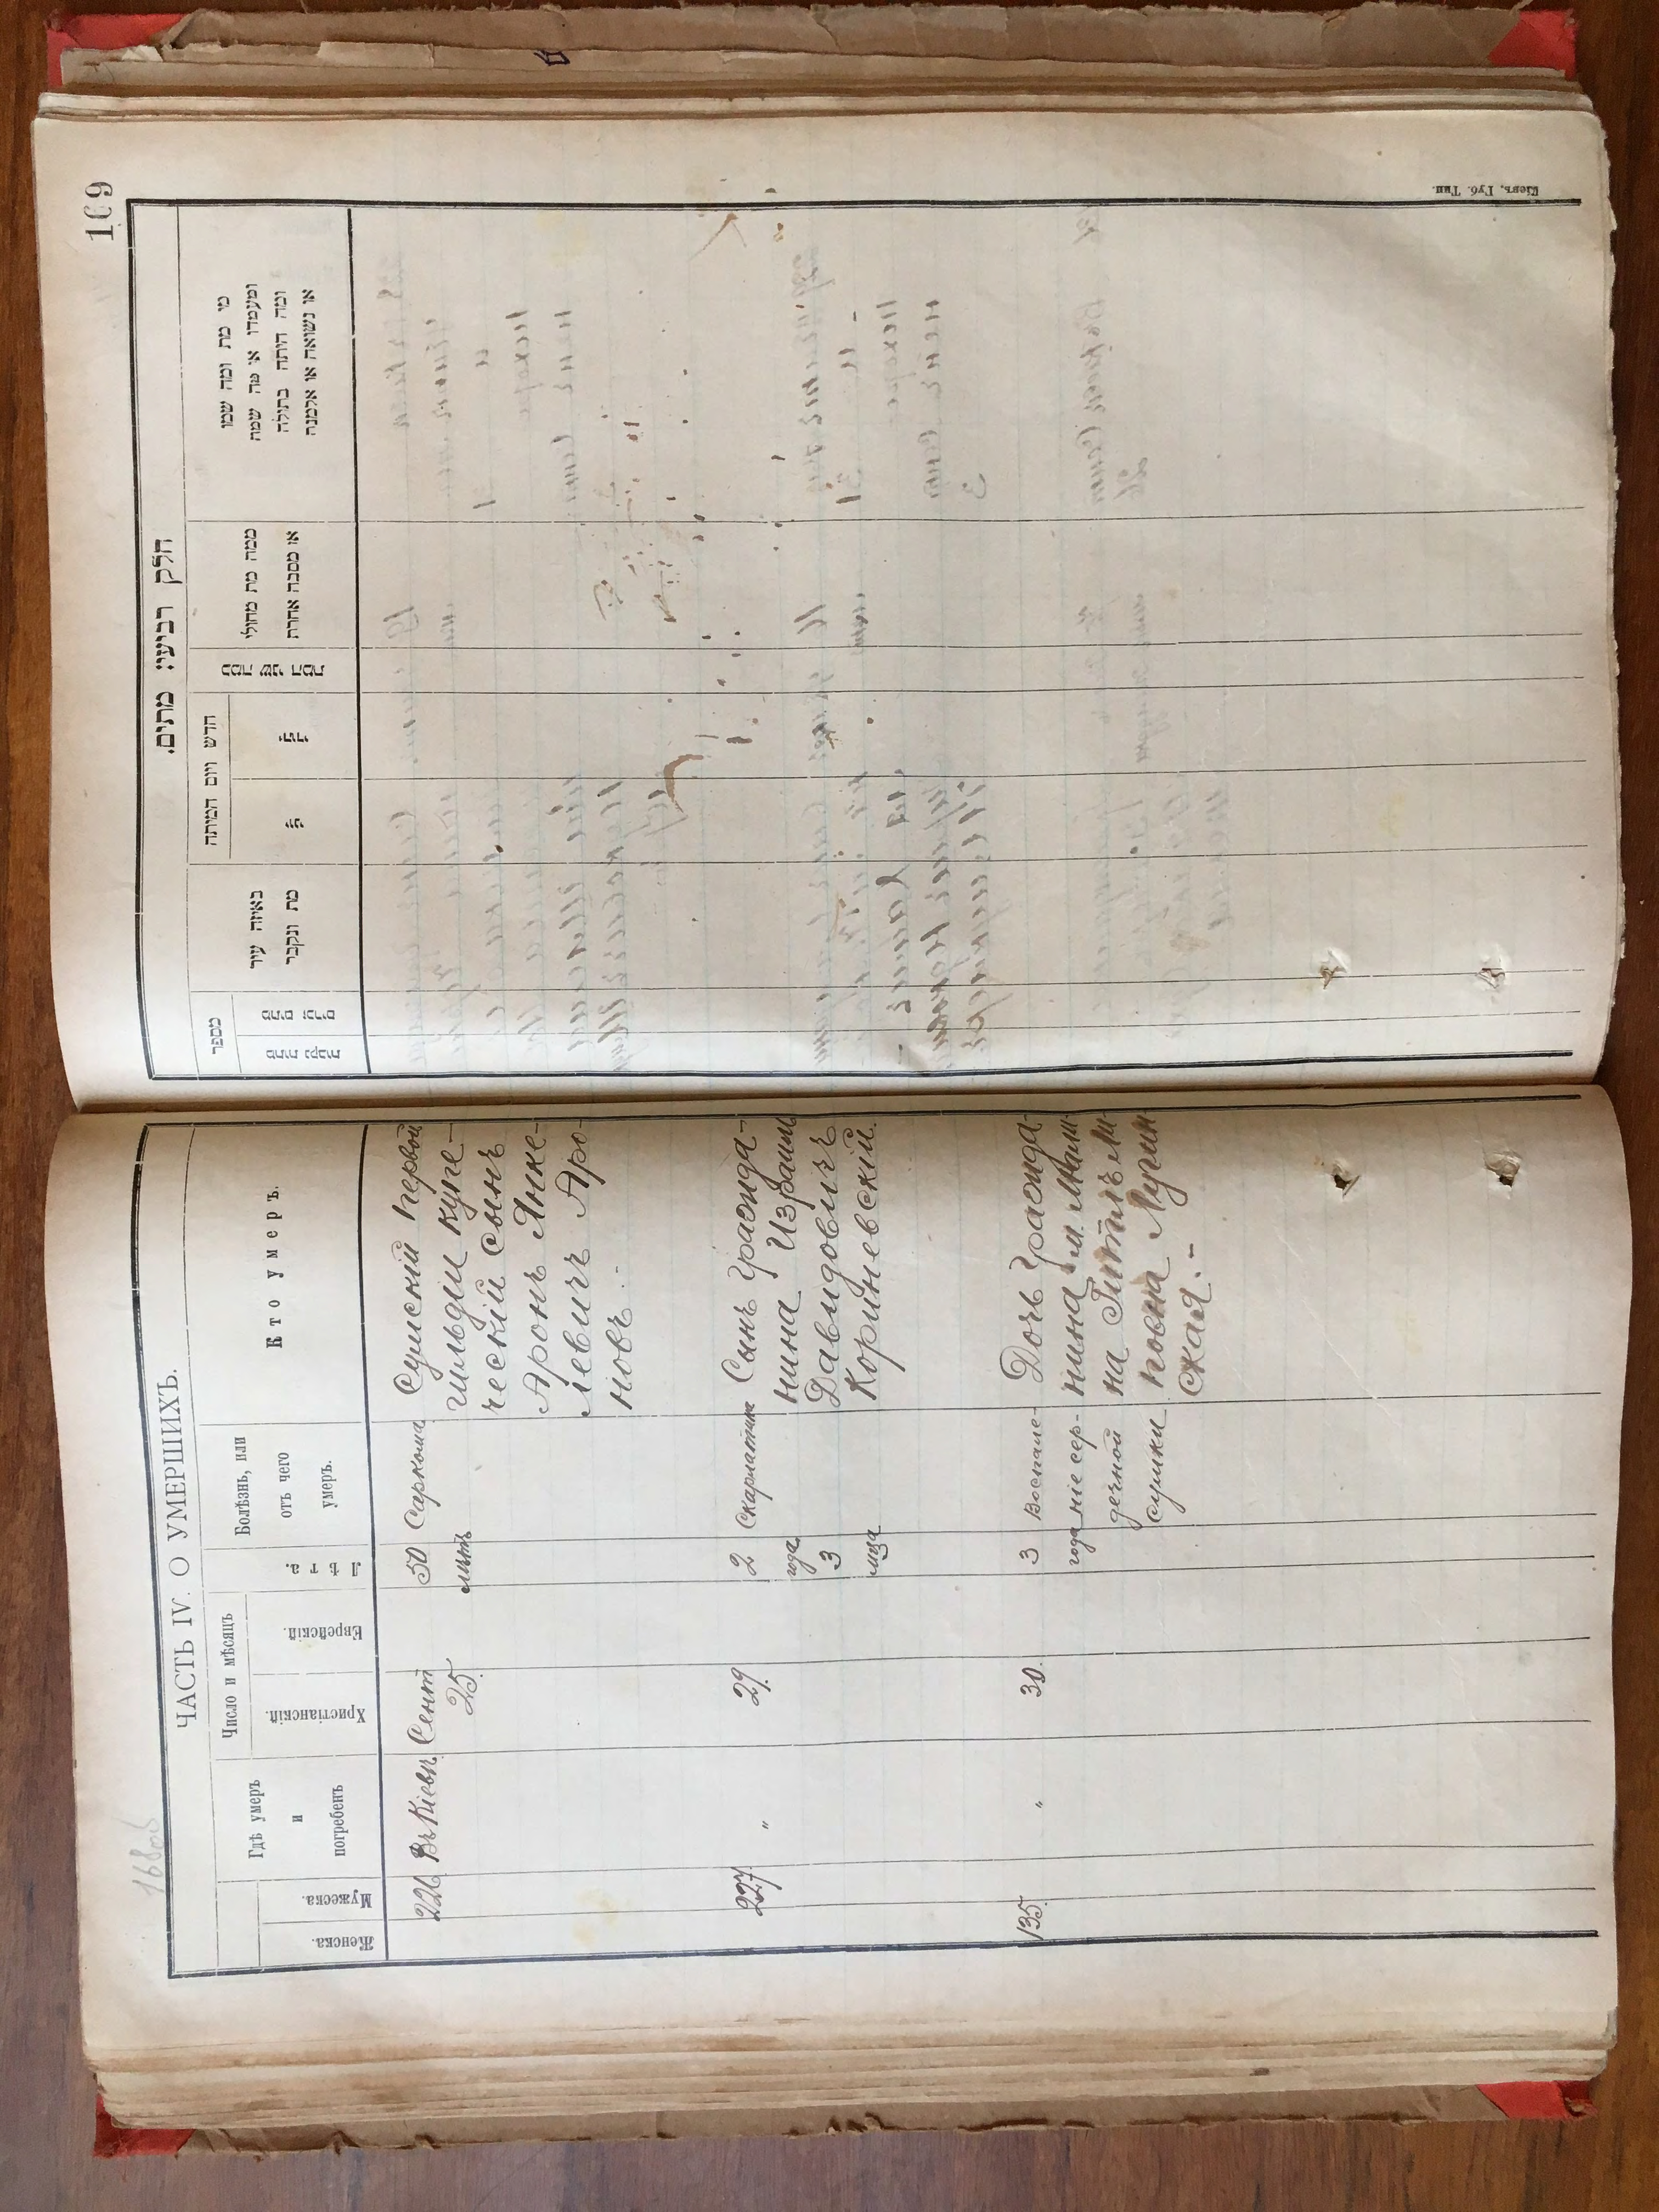 ЧАСТЬ IV. О УМЕРШИХЪ.
Женска.
Мужеска.
Гдѣ умеръ
и
погребенъ
Число и мѣсяцъ
Христіанскій.
Еврейскій.
Лѣта.
Болѣзнь, или
отъ чего
умеръ.
Кто умеръ.
226 Въ Кіевѣ Сент 25. 50 лѣтъ Саркома
Сумскій первой
гильдіи купе-
ческій сынъ
Аронъ Янке-
левичъ Аро-
новъ.-
227 " 29. 2 года 3 мца Скарлатина
Сынъ гражда-
нина Израиль
Давидовичъ
Кориневскій.
135. " 30. 3 года Воспале-
ніе сер-
дечной
сумки
Дочь гражда-
нина м.
на Гитль
Лугин
ская.-
169
חלק רביעי מתים.
מספר
באיזה עיר
מת ונקבר
חדש ויום המיתה
ממה מת מחולי
או מסבה אחרת
מי מת ומה שמו
ומעמדו או מה שמה
ומה היתה בתולה
או נשואה או אלמנה
Кіевъ, Губ. Тип.